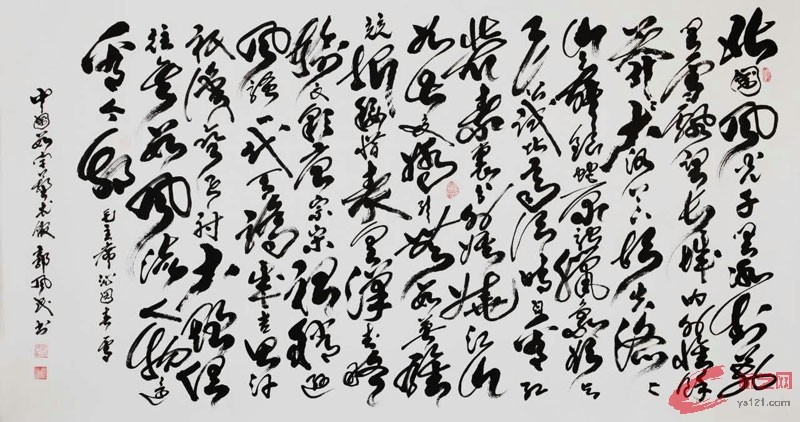 北国风光千里冰封万
里雪飘望长城内外惟余
莽莽大河上下顿失滔滔
山舞银蛇原驰蜡象欲与
天公试比高须晴日看红
装素裹分外妖娆江山
如此多娇引无数英雄
竞折腰惜秦皇汉武略
输文采唐宗宋祖稍逊
风骚一代天骄成吉思汗
只识弯弓射大雕俱
往矣数风流人物还
看今朝
毛主席沁园春雪
中国 艺术 郭 书
ys121.com